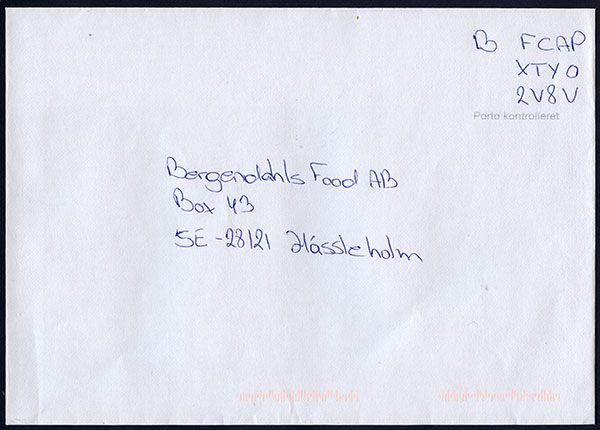 B FCAP
XTYO
2V8V
Porto kontrolleret
Bergendahls Food AB
Box 43
SE-28121 Hássleholm